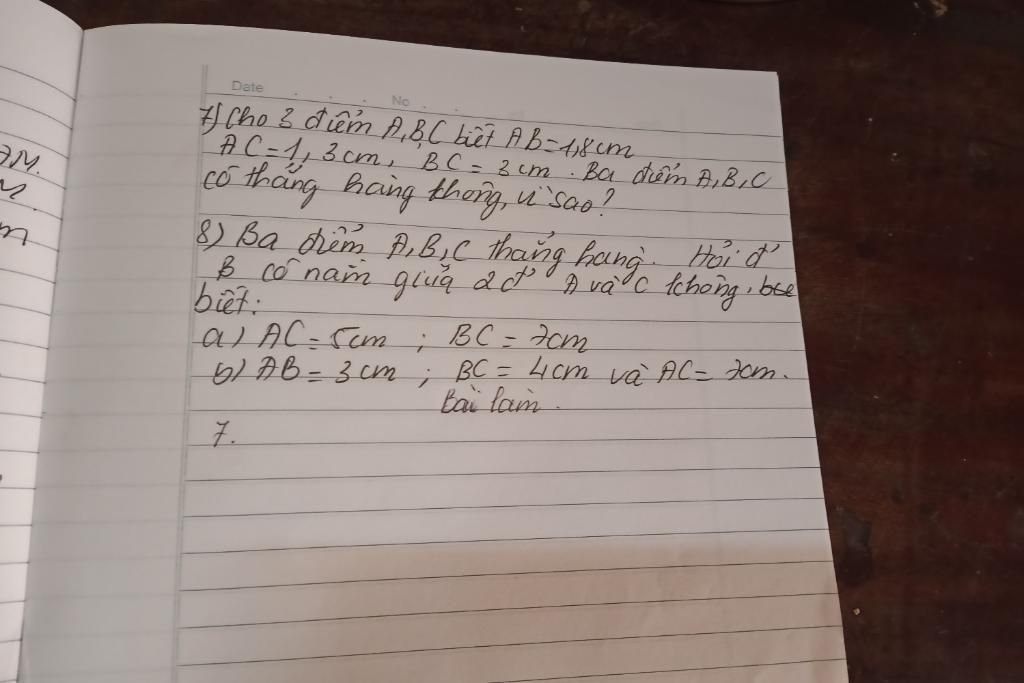 Date . . . No . .
7) Cho 3 điểm A, B, C biết AB = 1,8cm
AC = 1, 3cm, BC = 3cm. Ba điểm A, B, C
có thẳng hàng không, vì sao?
8) Ba điểm A, B, C thẳng hàng. Hỏi đ'
B có nằm giữa 2 đ' A và C không,
biết:
a) AC = 5cm ; BC = 7cm
b) AB = 3cm ; BC = 4cm và AC = 7cm.
Bài làm.
7.